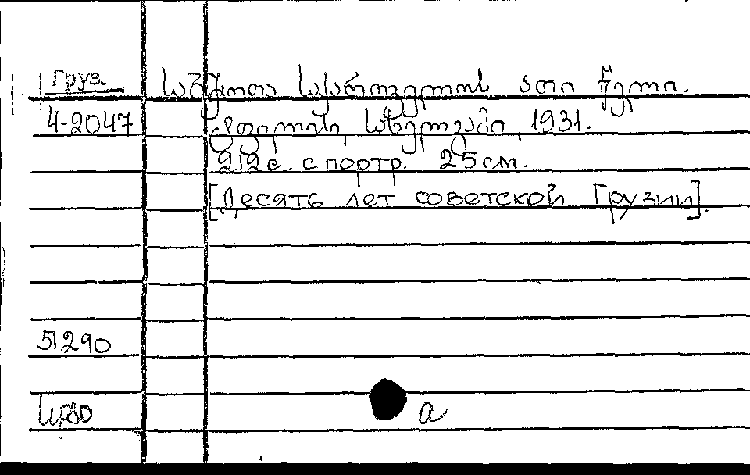 Груз. საბჭოთა საქართველოს ათი წელი.
4-2047 ტფილისი, სახელგამი, 1931.
212 с. с портр. 25 см.
[Десять лет советской Грузии].
51290
а